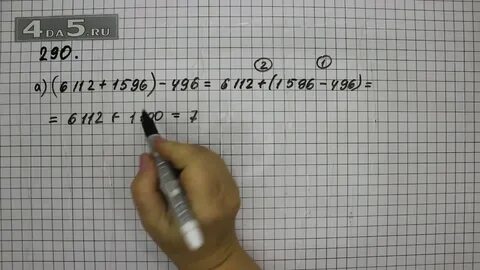 4DA5.RU
290.
② ①
а) (6112 + 1596) - 496 = 6112 + (1596 - 496) =
= 6112 + 1100 = 7